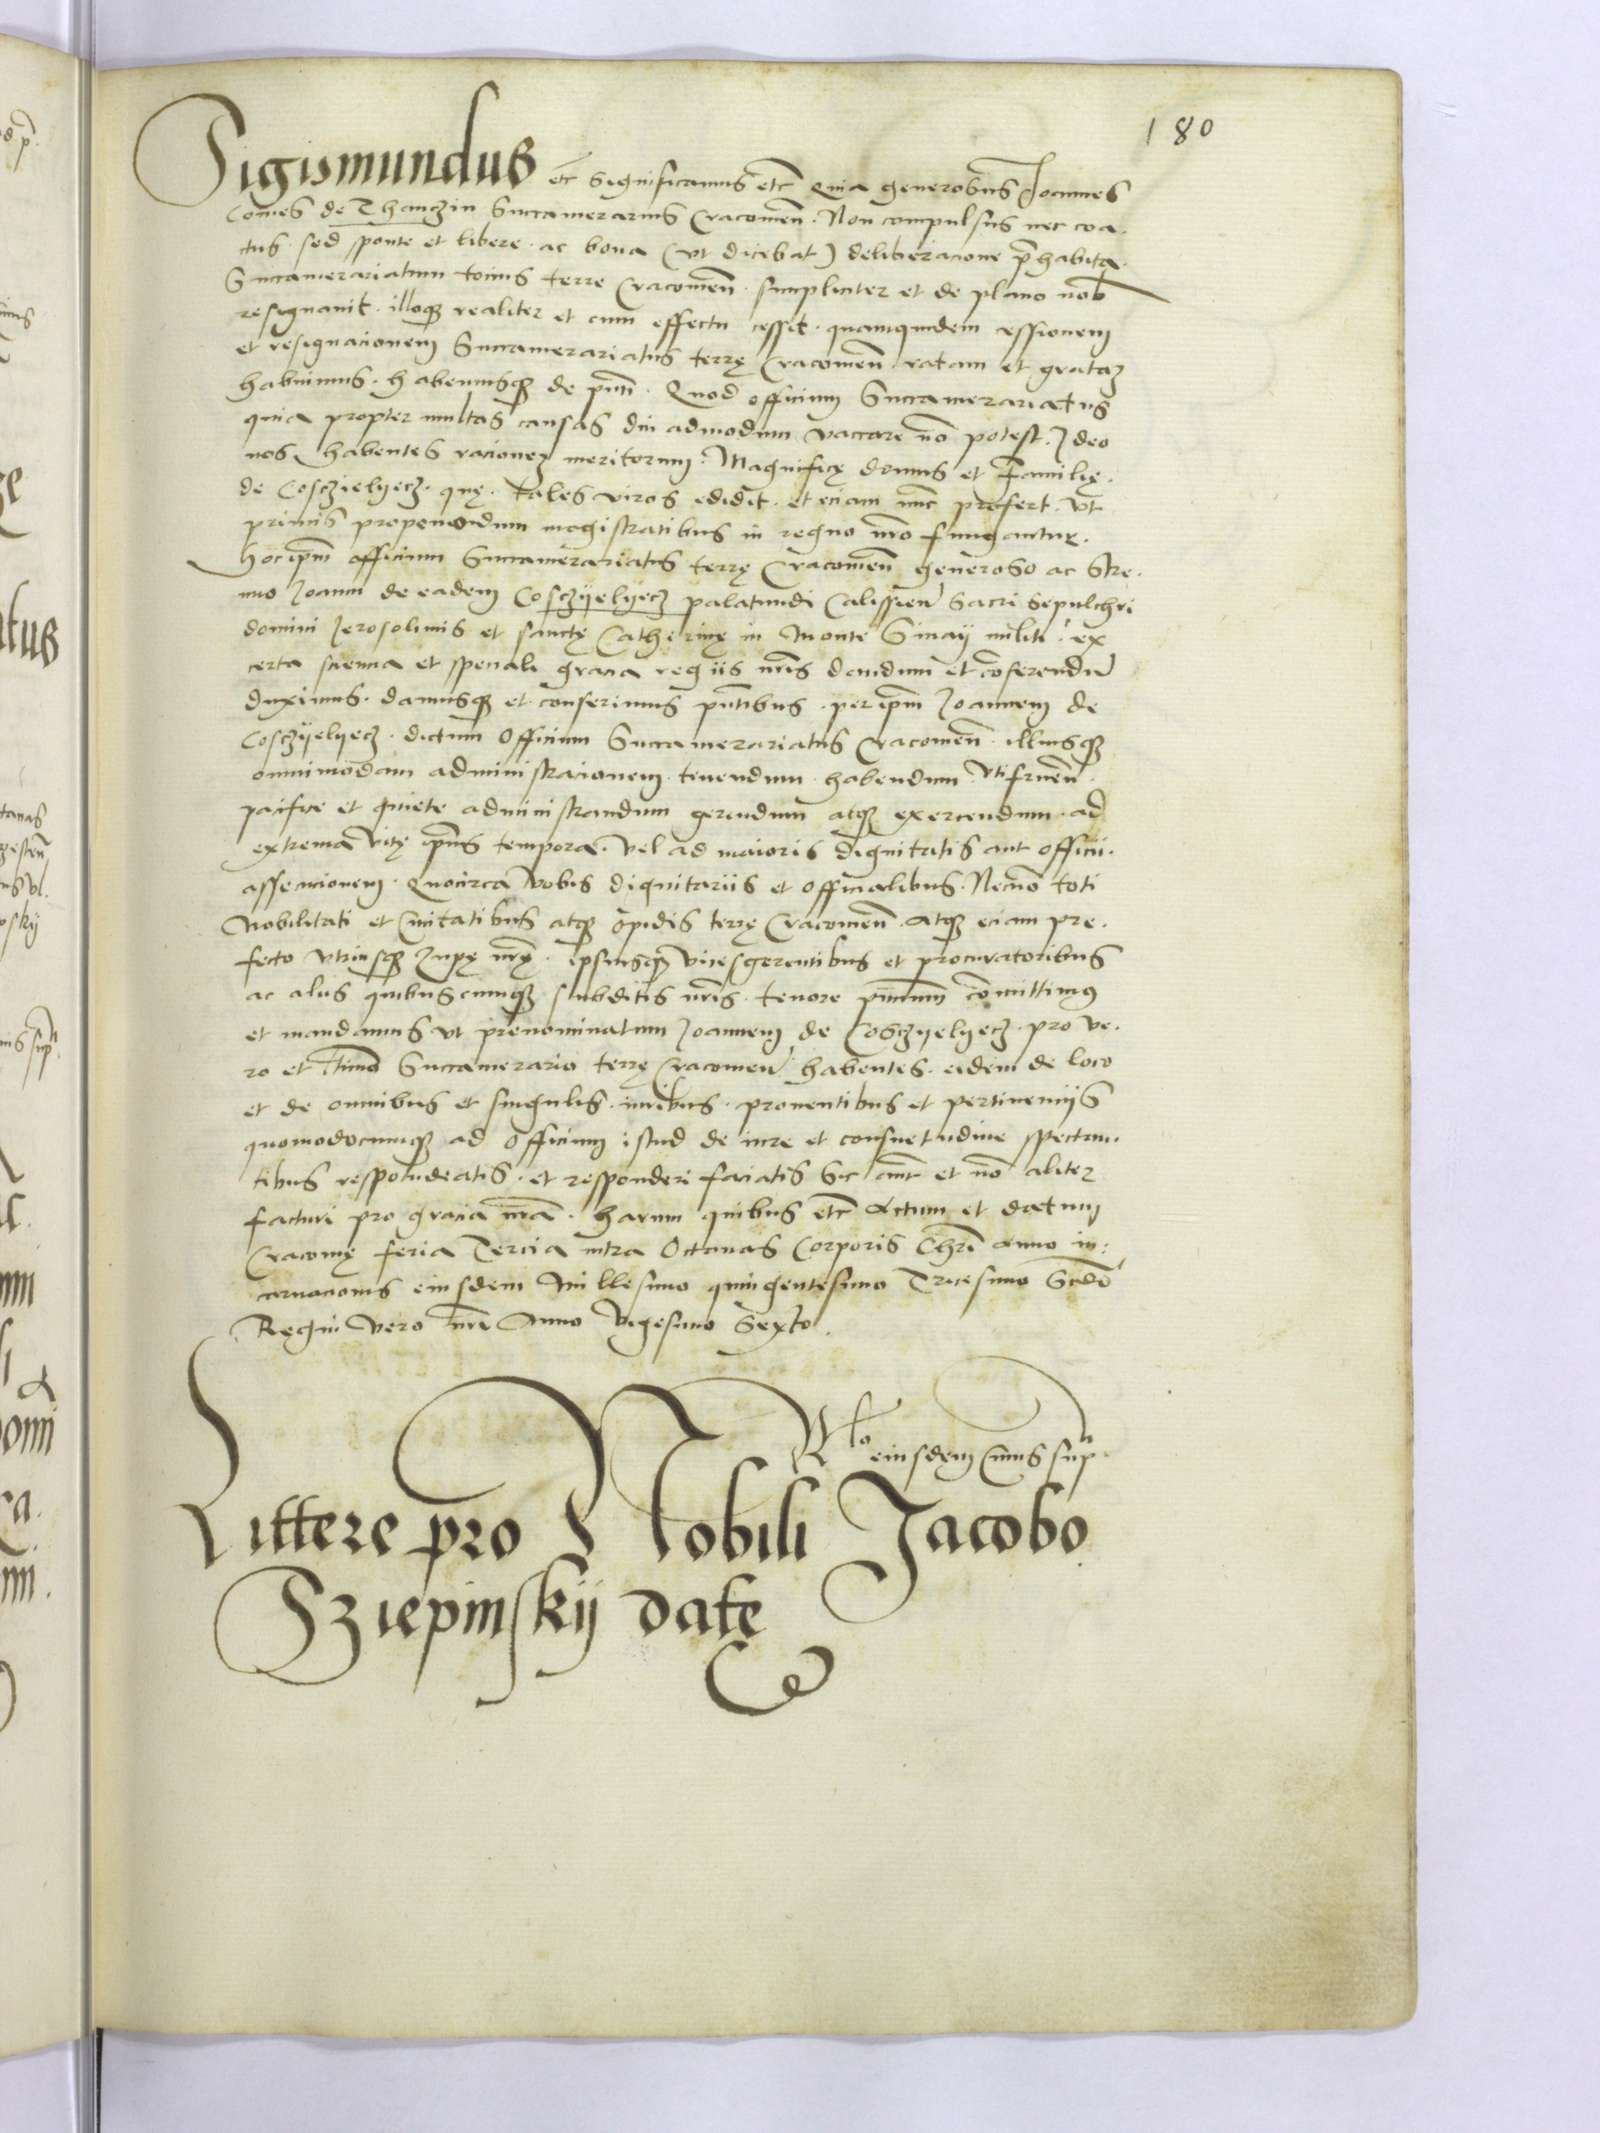 180
Sigismundus etc Significamus etc Quia generosus Joannes
Comes de Thanczin Succamerarius Cracouien̄. Non compulsus nec coa.
ctus. sed sponte et libere. ac bona (vt dicebat) deliberacione p̄habita.
Succamerariatum tocius terre Cracouien̄. simpliciter et de plano nob̄
resignauit. illoqȝ realiter et cum effectu cessit. quamquidem cessionem
et resignacionem Succamerariatus terrę Cracouien̄ ratam et gratam
habuimus. habemusqȝ de pn̄ti. Quod officium Succamerariatus
quia propter multas causas diu admodum vaccare nō potest. Ideo
nos habentes racionem meritorum. Magnificę domus et Familię.
de Cosczielyecz. quę. tales viros edidit. et eciam nūc profert. vt
primis propemodum magistratibus in regno nr̄o fungantur.
hoc ip̄m officium Succamerariatus terrę Cracouien̄ generoso ac Stre.
nuo Joanni de eadem Cosczyelyecz palatinidi Calissien̄ Sacri Sepulchri
domini Jerosolimis et sanctę Catherinę in Monte Sinay militi. ex
certa sciencia et speciali gracia regiis nr̄is dandum et cōferendū
duximus. damusqȝ et conferimus pn̄tibus. per ip̄m Joannem de
Cosczyelyecz. dictum Officium Succamerariatus Cracouien̄. illiusqȝ
omnimodam administracionem. tenendum. habendum. vtifruen̄.
pacifice et quiete administrandum gerendum atqȝ exercendum. ad
extrema vitę ip̄ius tempora. vel ad maioris dignitatis aut officii.
assecucionem. Quocirca vobis dignitariis et Officialibus. Necnō toti
Nobilitati et Ciuitatibus atqȝ opidis terrę Cracouien̄. Atqȝ eciam pre.
fecto vtriusqȝ Zupę nr̄ę. ipsiusqȝ vicesgerentibus et procuratoribus
ac aliis quibuscumqȝ subditis nr̄is. tenore pn̄cium cōmittimus
et mandamus vt prenominatum Joannem de Cosczyelyecz. pro ve.
ro et Succamerario terrę Cracouien̄ habentes. eidem de loco
et de omnibus et singulis. iuribus. prouentibus et pertinenciis
quomodocumqȝ ad Officium istud de iure et consuetudine spectan.
tibus respondeatis. et responderi faciatis Sic et nō aliter
facturi pro gracia nr̄a. Harum quibus etc Actum et datum
Cracouię feria Tercia infra Octauas Corporis Chr̄i Anno in:
carnacionis eiusdem Millesimo quingentesimo Tricesimo Scdo
Regni vero nr̄i Anno vigesimo Sexto.
Rlo eiusdem Cuius sup̄.
Littere pro Nobili Jacobo
Sziepinskij datę